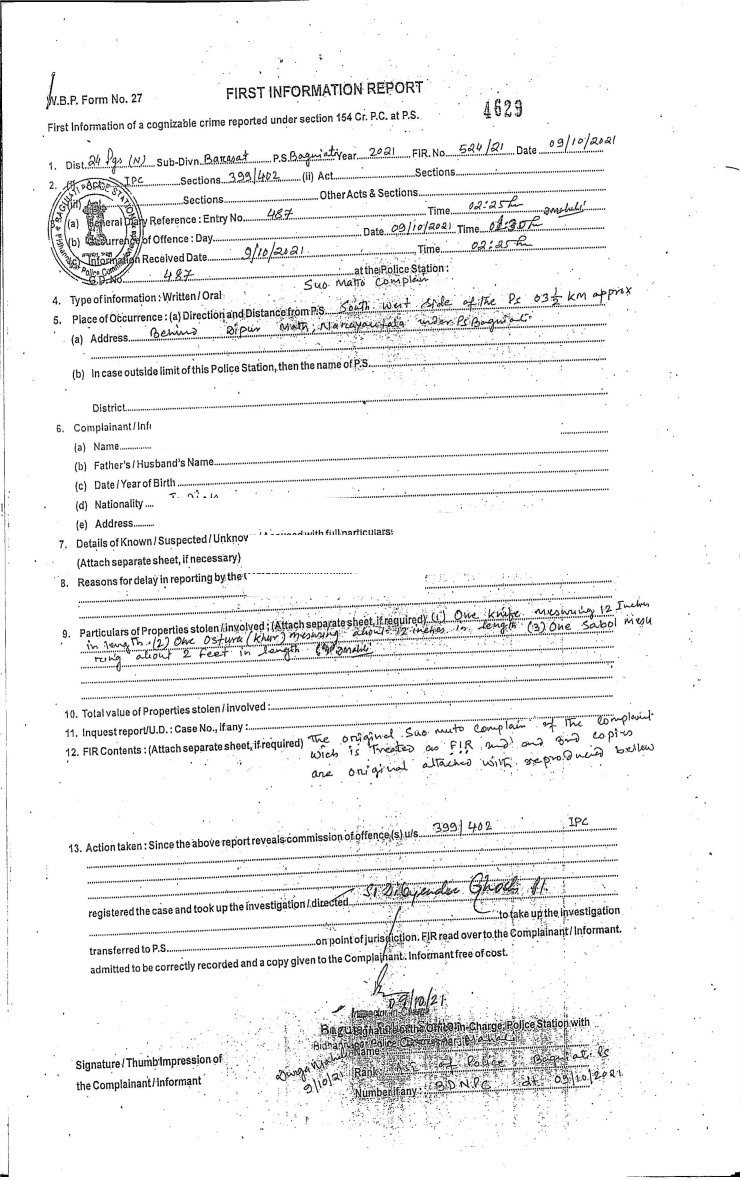 W.B.P. Form No. 27
FIRST INFORMATION REPORT
4629
First Information of a cognizable crime reported under section 154 Cr. P.C. at P.S.
1. Dist. 24 Pgs (N) Sub-Divn. Barasat P.S. Baguiati Year 2021 FIR. No. 524/21 Date 09/10/2021
2. IPC Sections 399/402 (ii) Act Sections
Sections Other Acts & Sections
(a) General Diary Reference : Entry No. 487 Time 02:25 h
(b) Occurrence of Offence : Day Date 09/10/2021 Time
Information Received Date 9/10/2021 Time 02:25 h
G.D. No. 487 at the Police Station :
4. Type of information : Written / Oral Suo Matto Complain
5. Place of Occurrence : (a) Direction and Distance from P.S. South west side of the Ps 03 ½ KM approx
(a) Address Behind Math, Narayantala under Ps Baguiati
(b) In case outside limit of this Police Station, then the name of P.S.
District
6. Complainant / Inf
(a) Name
(b) Father's / Husband's Name
(c) Date / Year of Birth
(d) Nationality
(e) Address
7. Details of Known / Suspected / Unknov with full particulars:
(Attach separate sheet, if necessary)
8. Reasons for delay in reporting by the
9. Particulars of Properties stolen / involved : (Attach separate sheet, if required) (1) One Knife mesuring 12 Inches
in length (2) One Ostura (Khur) mesuring about 12 inches in length (3) One Sabol mesu
ring about 2 Feet in length
10. Total value of Properties stolen / involved :
11. Inquest report / U.D. : Case No., if any :
12. FIR Contents : (Attach separate sheet, if required) The original Suo muto complain of the complaint
wich is Treated as FIR and and 2nd copies
are original attached with reproduced bellow
13. Action taken : Since the above report reveals commission of offence(s) u/s 399/402 IPC
registered the case and took up the investigation / directed S.I. Ghosh
to take up the investigation
transferred to P.S. on point of jurisdiction. FIR read over to the Complainant / Informant.
admitted to be correctly recorded and a copy given to the Complainant. Informant free of cost.
09/10/21
Inspector-in-Charge
Signature of the Officer-in-Charge, Police Station with
Name
Signature / Thumb Impression of
the Complainant / Informant
9/10/21
Rank of Police, Baguiati Ps
Number if any : BDNPC dt 09/10/2021